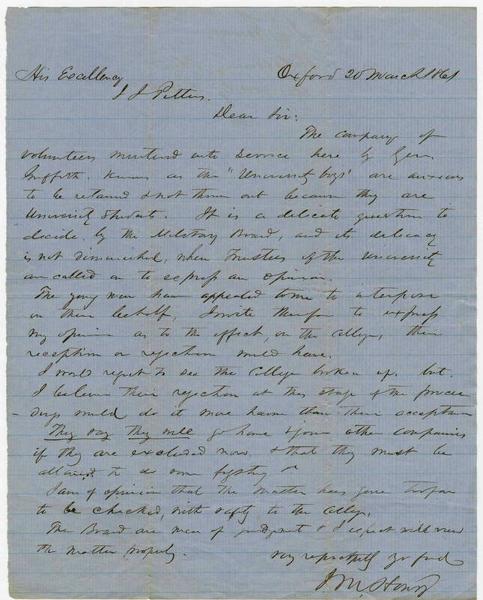 Oxford 20 March 1861
His Excellency
J J Pettus.
Dear Sir:
The company of
volunteers mustered into service here by Gen.
Griffith. known as the "University Grays" are anxious
to be retained & not thrown out because they are
University Students. It is a delicate question to
decide, by the Military Board, and its delicacy
is not diminished, when Trustees of the University
are called on to express an opinion.
The young men have appealed to me to interpose
in their behalf, I write therefore to express
my opinion as to the effect, on the College, their
reception or rejection would have.
I would regret to see the College broken up, but
I believe their rejection at this stage of the procee
-dings would do it more harm than their acceptance
They say they will go home & join other companies
if they are excluded now, & that they must be
allowed to do some fighting
I am of opinion that the matter has gone too far
to be checked, with safety to the College.
The Board are men of judgment & I expect will view
the matter properly.
very respectfully